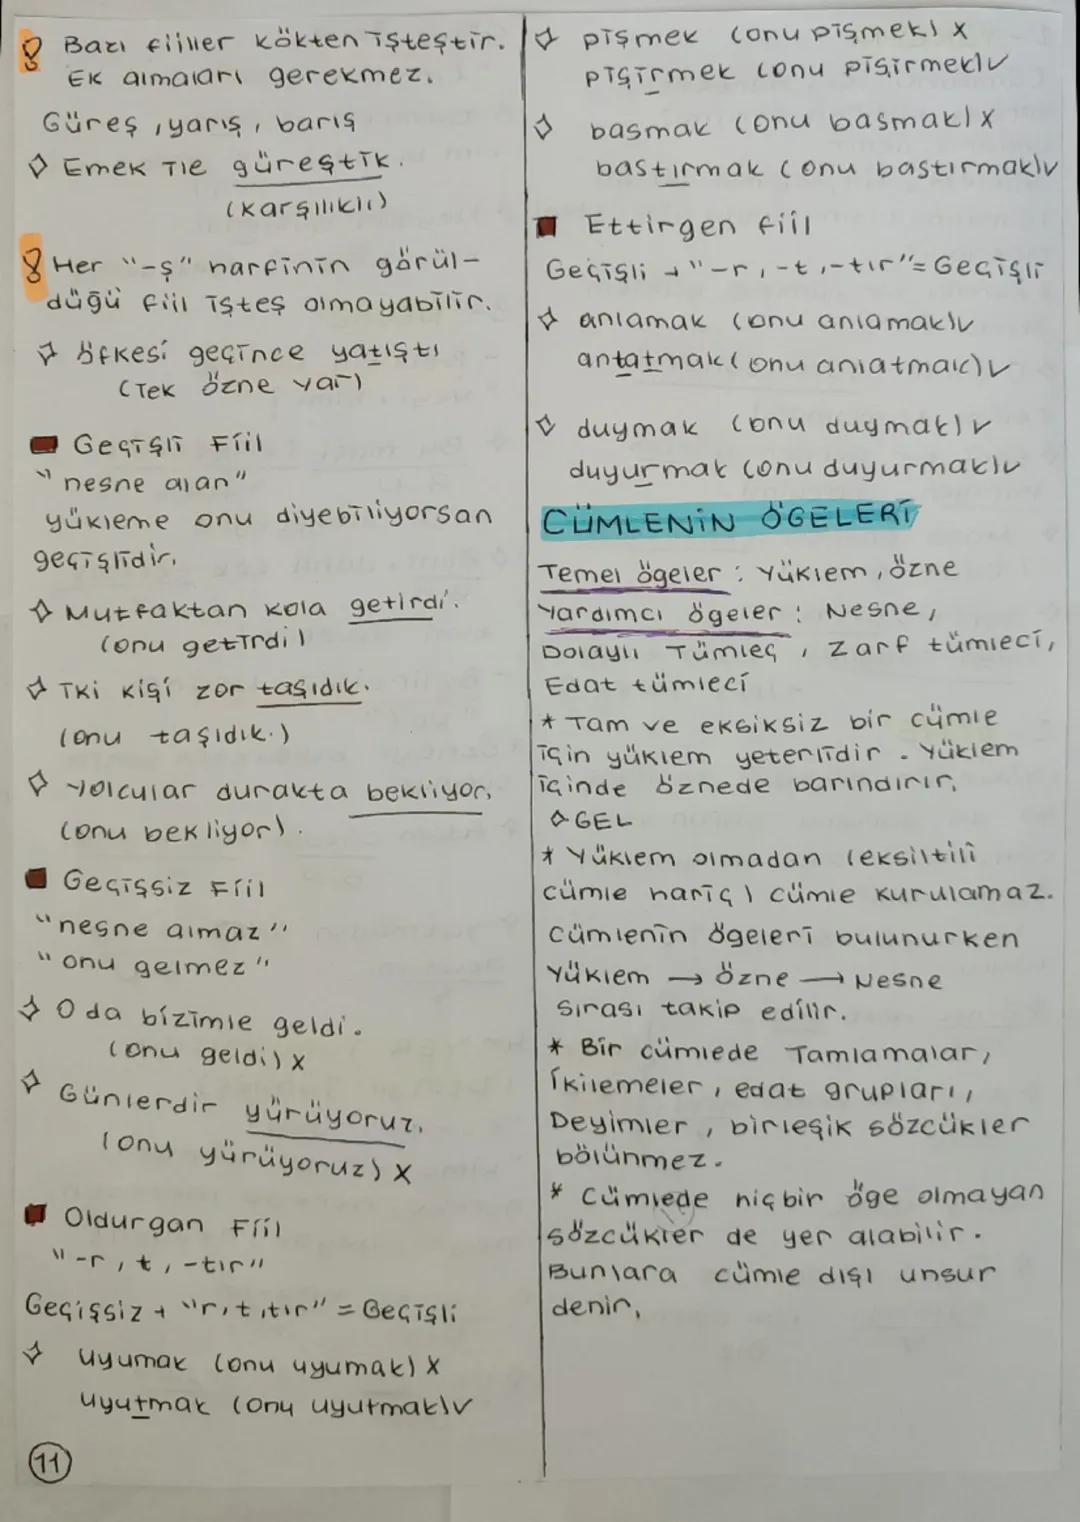 Bazı fiiller kökten işteştir.
Ek almaları gerekmez.
Güreş, yarış, barış
Emek ile güreştik.
(Karşılıklı)
Her "-ş" harfinin görül-
düğü fiil işteş olmayabilir.
öfkesi geçince yatıştı
(Tek özne var)
Geçişli Fiil
"nesne alan"
yükleme onu diyebiliyorsan
geçişlidir.
Mutfaktan kola getirdi.
(onu getirdi)
İki kişi zor taşıdık.
(onu taşıdık.)
Yolcular durakta bekliyor.
(onu bekliyor).
Geçişsiz Fiil
"nesne almaz"
"onu gelmez"
O da bizimle geldi.
(onu geldi) x
Günlerdir yürüyoruz.
(onu yürüyoruz) x
Oldurgan Fiil
"-r, t, -tır"
Geçişsiz + "r, t, tır" = Geçişli
uyumak (onu uyumak) x
uyutmak (onu uyutmak)v
11
pişmek (onu pişmek) x
pişirmek (onu pişirmek)v
basmak (onu basmak) x
bastırmak (onu bastırmak)v
Ettirgen fiil
Geçişli + "-r, -t, -tır" = Geçişli
anlamak (onu anlamak)v
anlatmak (onu anlatmak)v
duymak (onu duymak)v
duyurmak (onu duyurmak)v
CÜMLENİN ÖGELERİ
Temel ögeler : Yüklem, özne
Yardımcı ögeler : Nesne,
Dolaylı Tümleç, Zarf tümleci,
Edat tümleci
* Tam ve eksiksiz bir cümle
için yüklem yeterlidir. Yüklem
içinde öznede barındırır.
GEL
* Yüklem olmadan (eksiltili
cümle hariç) cümle kurulamaz.
Cümlenin ögeleri bulunurken
Yüklem → özne → Nesne
sırası takip edilir.
* Bir cümlede Tamlamalar,
İkilemeler, edat grupları,
Deyimler, birleşik sözcükler
bölünmez.
* Cümlede hiçbir öge olmayan
sözcükler de yer alabilir.
Bunlara cümle dışı unsur
denir.